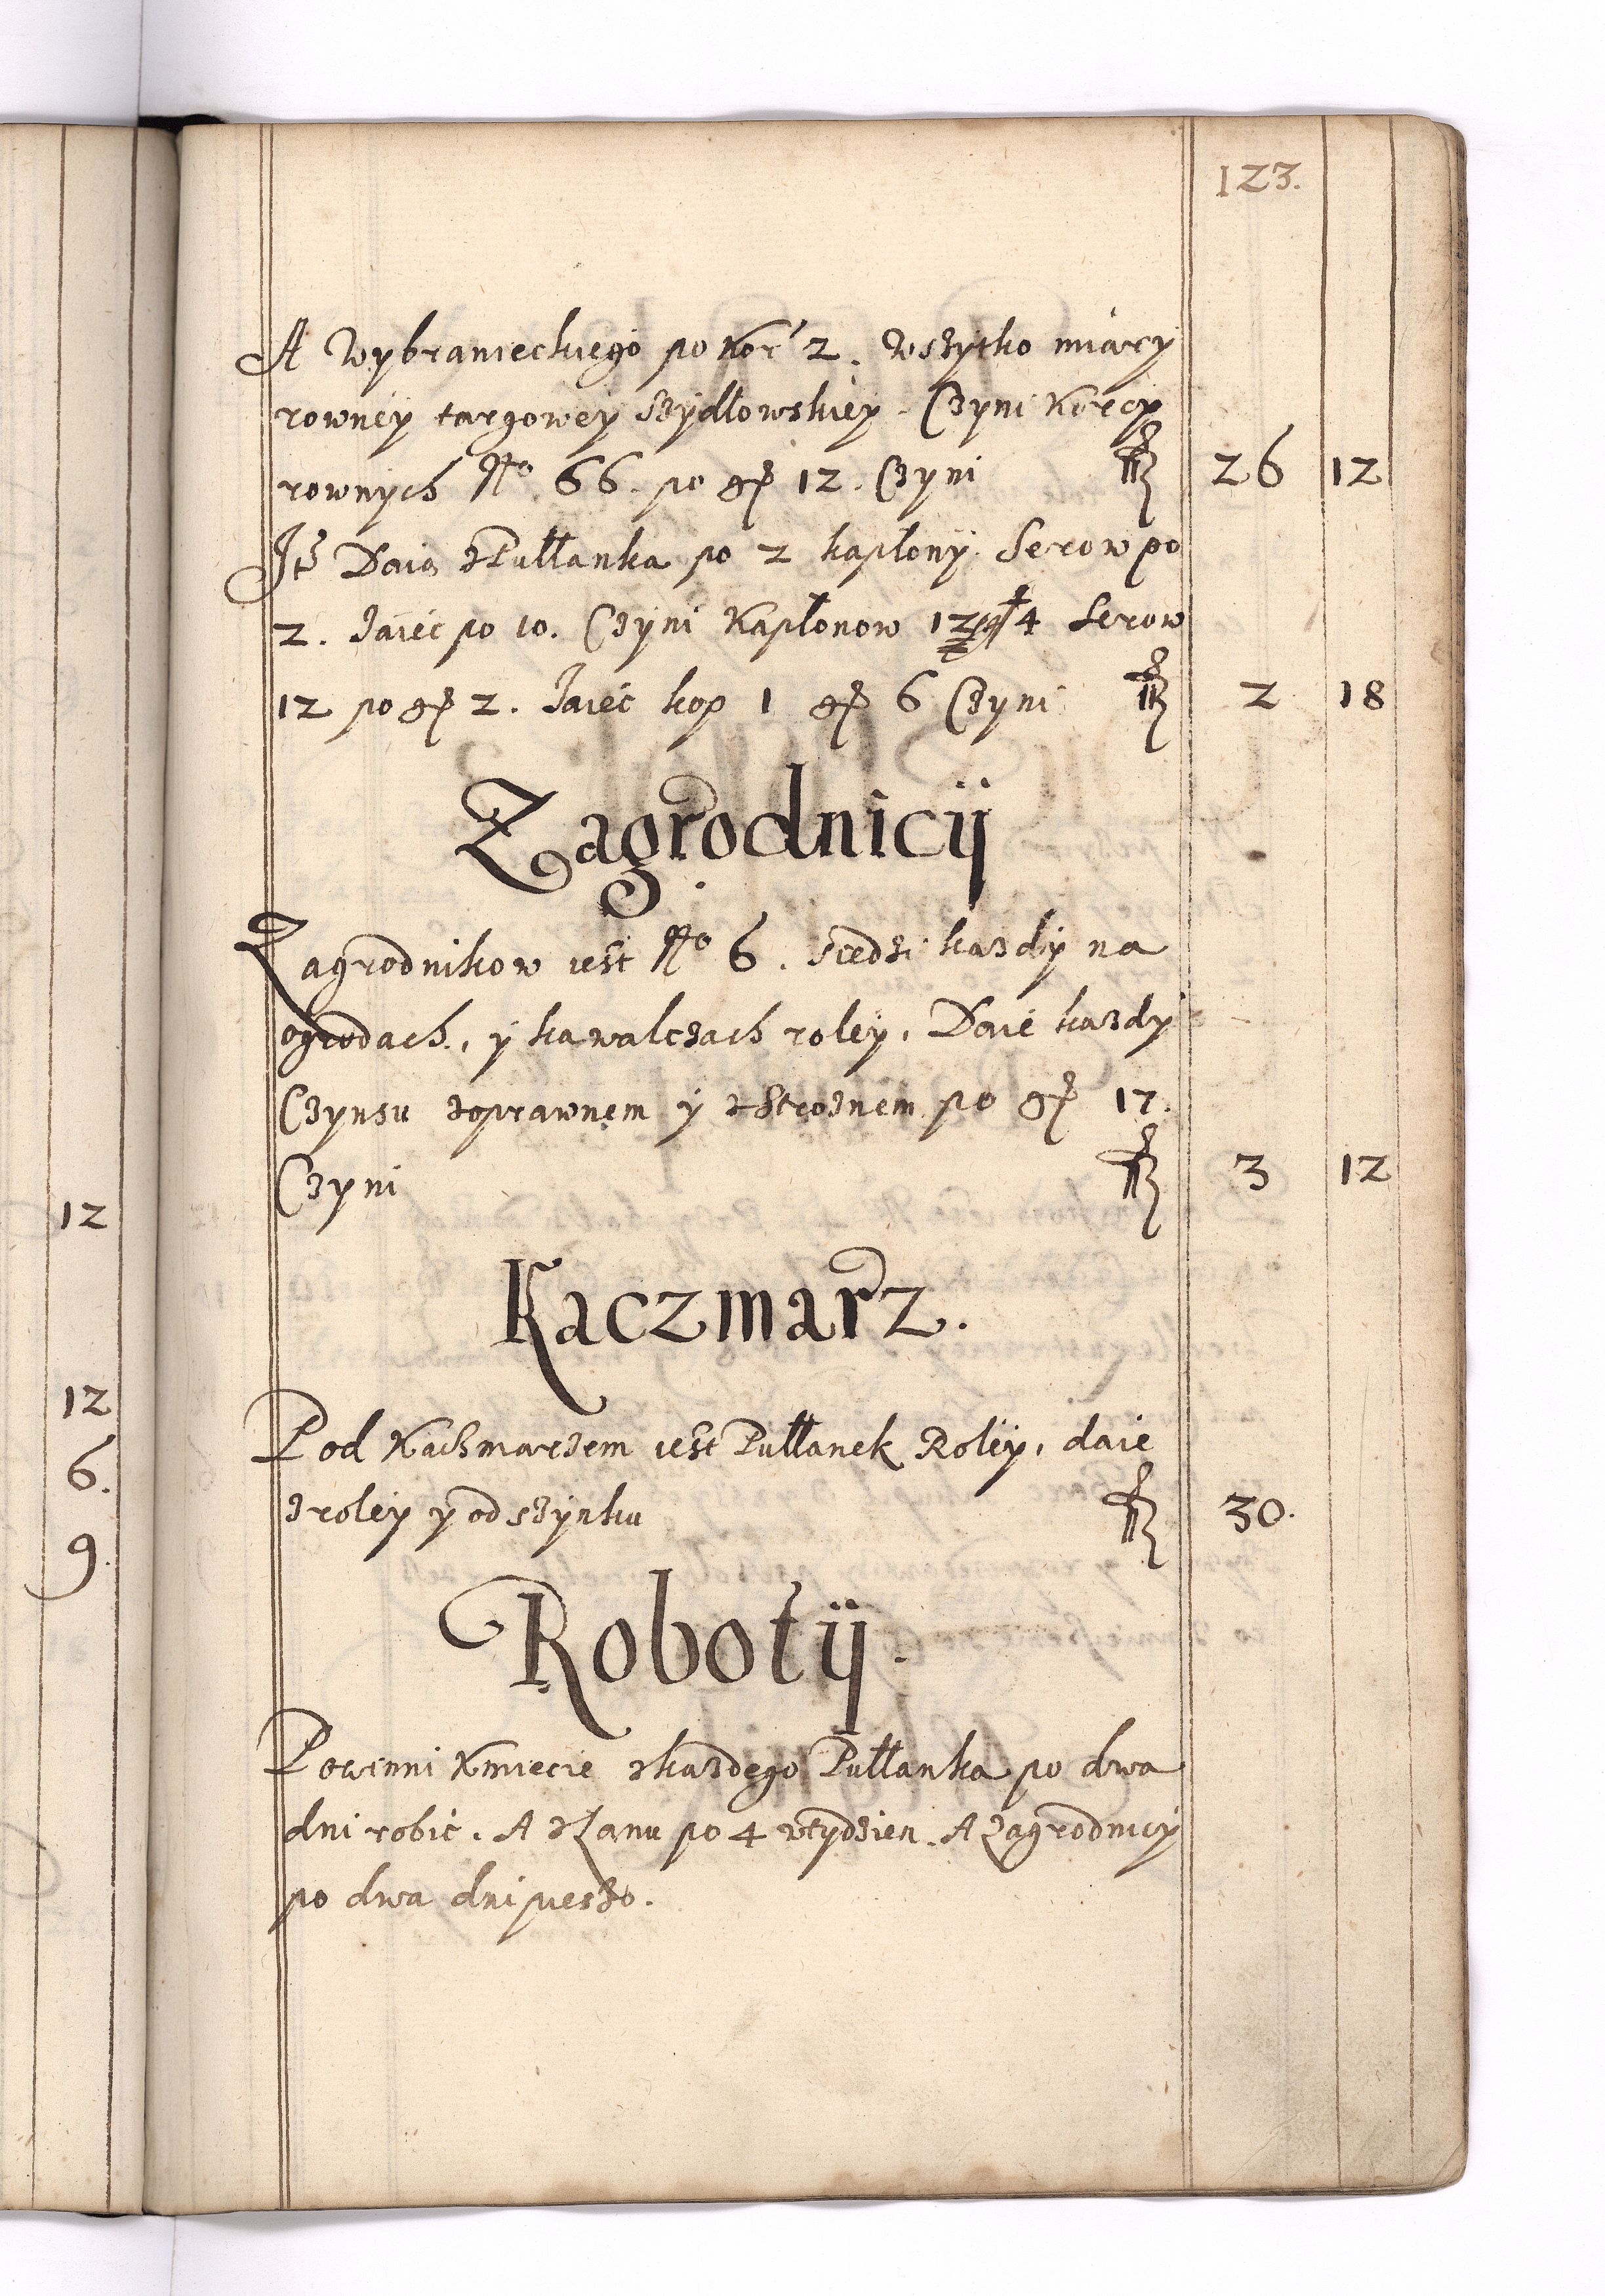 123.
A Wybranieckiego po Kor 2. Wszytko miary
rowney targowey Szydłowskiey. Czyni Korcy
rownych No 66. po gr 12. Czyni fl 26 12
It Daią z Pułłanka po 2 kapłony. Serow po
2. Jaiec po 10. Czyni Kapłonow 12 4 Serow
12 po gr 2. Jaiec kop 1 gr 6 Czyni fl 2 18
Zagrodnicÿ
Zagrodnikow iest No 6. siedzi kazdy na
ogrodach, y kawalczach roley, Daie kazdy
Czynsu zoprawnem y zStroznem po gr 17.
Czyni fl 3 12
Kaczmarz.
Pod Kaczmarzem iest Pułłanek Roley, daie
zroley y od szynku fl 30.
Robotÿ.
Powinni Kmiecie zkazdego Pułłanka po dwa
dni robic. A zŁanu po 4 wtydzien. A Zagrodnicy
po dwa dni pieszo.
12
12
6.
9.